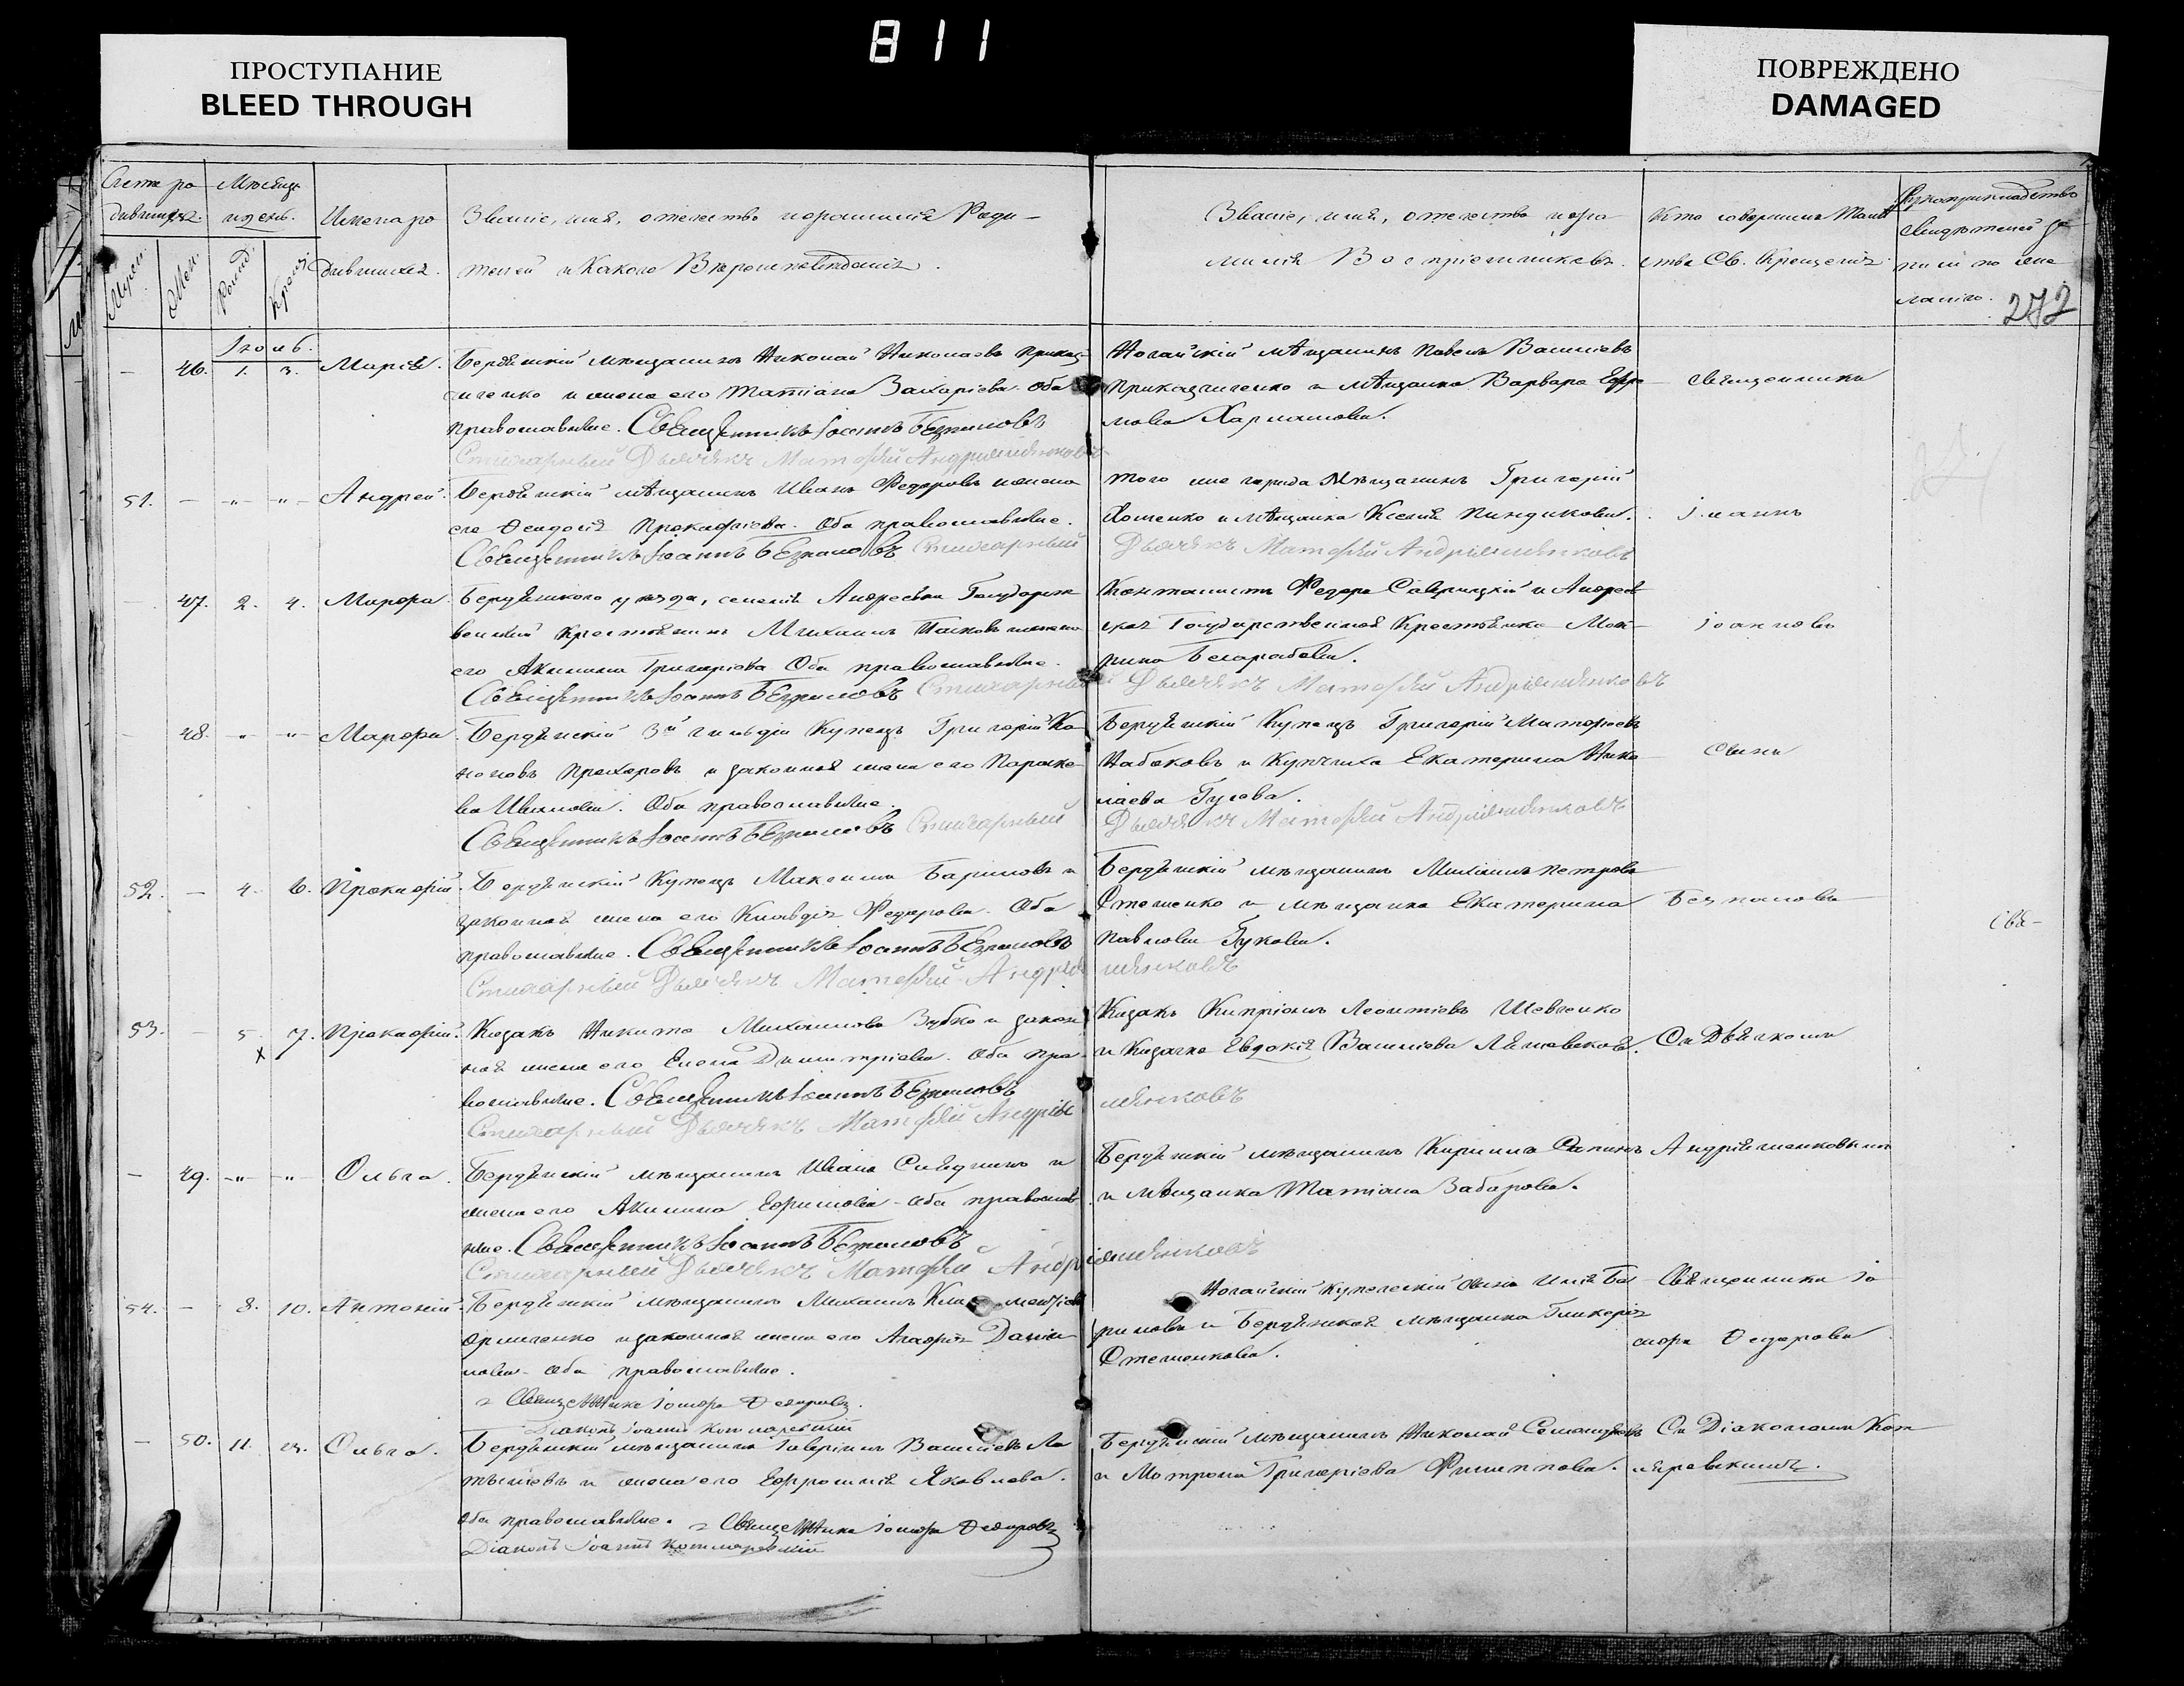 811
ПРОСТУПАНИЕ
BLEED THROUGH
ПОВРЕЖДЕНО
DAMAGED
Счетъ ро
дившихся.
Мѣсяцъ
и день.
Имена ро
дившихся.
Званіе, имя, отечество и фамилія Роди-
телей и Какого Вѣроисповѣданія.
Званіе, имя, отечество и фа
милія Воспріемниковъ.
Кто совершилъ Таин
ство Св. Крещенія.
Рукоприкладство
свидѣтелей за
писи по же
ланію.
272
Муж.
Жен.
Рожд.
Крещ.
Іюль.
46. 1. 3. Марія. Бердянскій мѣщанинъ Николай Николаевъ
и жена его Татіана Захаріева. Оба
православные. Священникъ Іоаннъ Безпаловъ
Стихарный Дьячекъ Матофѣй Андріяшенковъ
Ногайскій мѣщанинъ Павелъ Василіевъ
и мѣщанка Варвара
Священникъ
51. Андрей. Бердянскій мѣщанинъ Иванъ Федоровъ и жена
его Феодосія Прокофіева. Оба православные.
Священникъ Іоаннъ Безпаловъ Стихарный
того же города Мѣщанинъ Григорій
и мѣщанка Ксенія
Дьячекъ Матофѣй Андріяшенковъ
Іоаннъ
47. 2. 4. Марфа. Бердянского уѣзда, селенія Андреевки Государст
венный Крестьянинъ Михаилъ и жена
его Акилина Григоріева Оба православные.
Священникъ Іоаннъ Безпаловъ Стихарный
Федоръ и Андреев
ская Государственная Крестьянка
Дьячекъ Матофѣй Андріяшенковъ
48. Марфа. Бердянскій 3й гильдіи Купецъ Григорій Ко
ноновъ Прохоровъ и законная жена его Параске
ва Иванова. Оба православные.
Священникъ Іоаннъ Безпаловъ Стихарный
Бердянскій Купецъ Григорій Матофѣевъ
Набоковъ и Купчиха Екатерина Нико
лаева Гусева.
Дьячекъ Матофѣй Андріяшенковъ
52. 4. 6. Прокофій. Бердянскій Купецъ Максимъ Бариловъ и
законная жена его Клавдія Федорова. Оба
православные. Священникъ Іоаннъ Безпаловъ
Стихарный Дьячекъ Матофѣй Андрія
шенковъ
Бердянскій мѣщанинъ Михаилъ Петровъ
Стешенко и мѣщанка Екатерина
Павлова Гукова.
Безпаловъ
Свя-
53. 5. 7. Прокофій. Козакъ Никита Михаиловъ Зубко и закон
ная жена его Елена Димитріева. Оба пра
вославные. Священникъ Іоаннъ Безпаловъ
Стихарный Дьячекъ Матофѣй Андрія
шенковъ
Козакъ Кипріянъ Леонтіевъ Шевченко
и Козачка Евдокія Василіева
Съ Дьячкомъ
49. Ольга. Бердянскій мѣщанинъ Иванъ и
жена его Акилина Ефимова. Оба православ
ные. Священникъ Іоаннъ Безпаловъ
Стихарный Дьячекъ Матофѣй Андріяшенковъ
Бердянскій мѣщанинъ Кирилъ
и мѣщанка Татіана Забарова.
Андріяшенковымъ
54. 8. 10. Антоній. Бердянскій мѣщанинъ Михаилъ Климентіевъ
и законная жена его Агафія Дании
лова. Оба православные.
Священникъ Іосифъ Федоровъ.
Діаконъ Іоаннъ Котляревскій
Ногайскій купеческій сынъ Илія Ба
риловъ и Бердянская мѣщанка Гликерія
Стешенкова.
Священникъ Іо
сифъ Федоровъ
50. 11. Ольга. Бердянскій мѣщанинъ Гавріилъ Василіевъ Ла
тышевъ и жена его Ефросинія Яковлева.
Оба православные. Священникъ Іосифъ Федоровъ
Діаконъ Іоаннъ Котляревскій
Бердянскій мѣщанинъ Николай
и Мотрона Григоріева Филиппова.
Съ Діакономъ Кот
ляревскимъ.